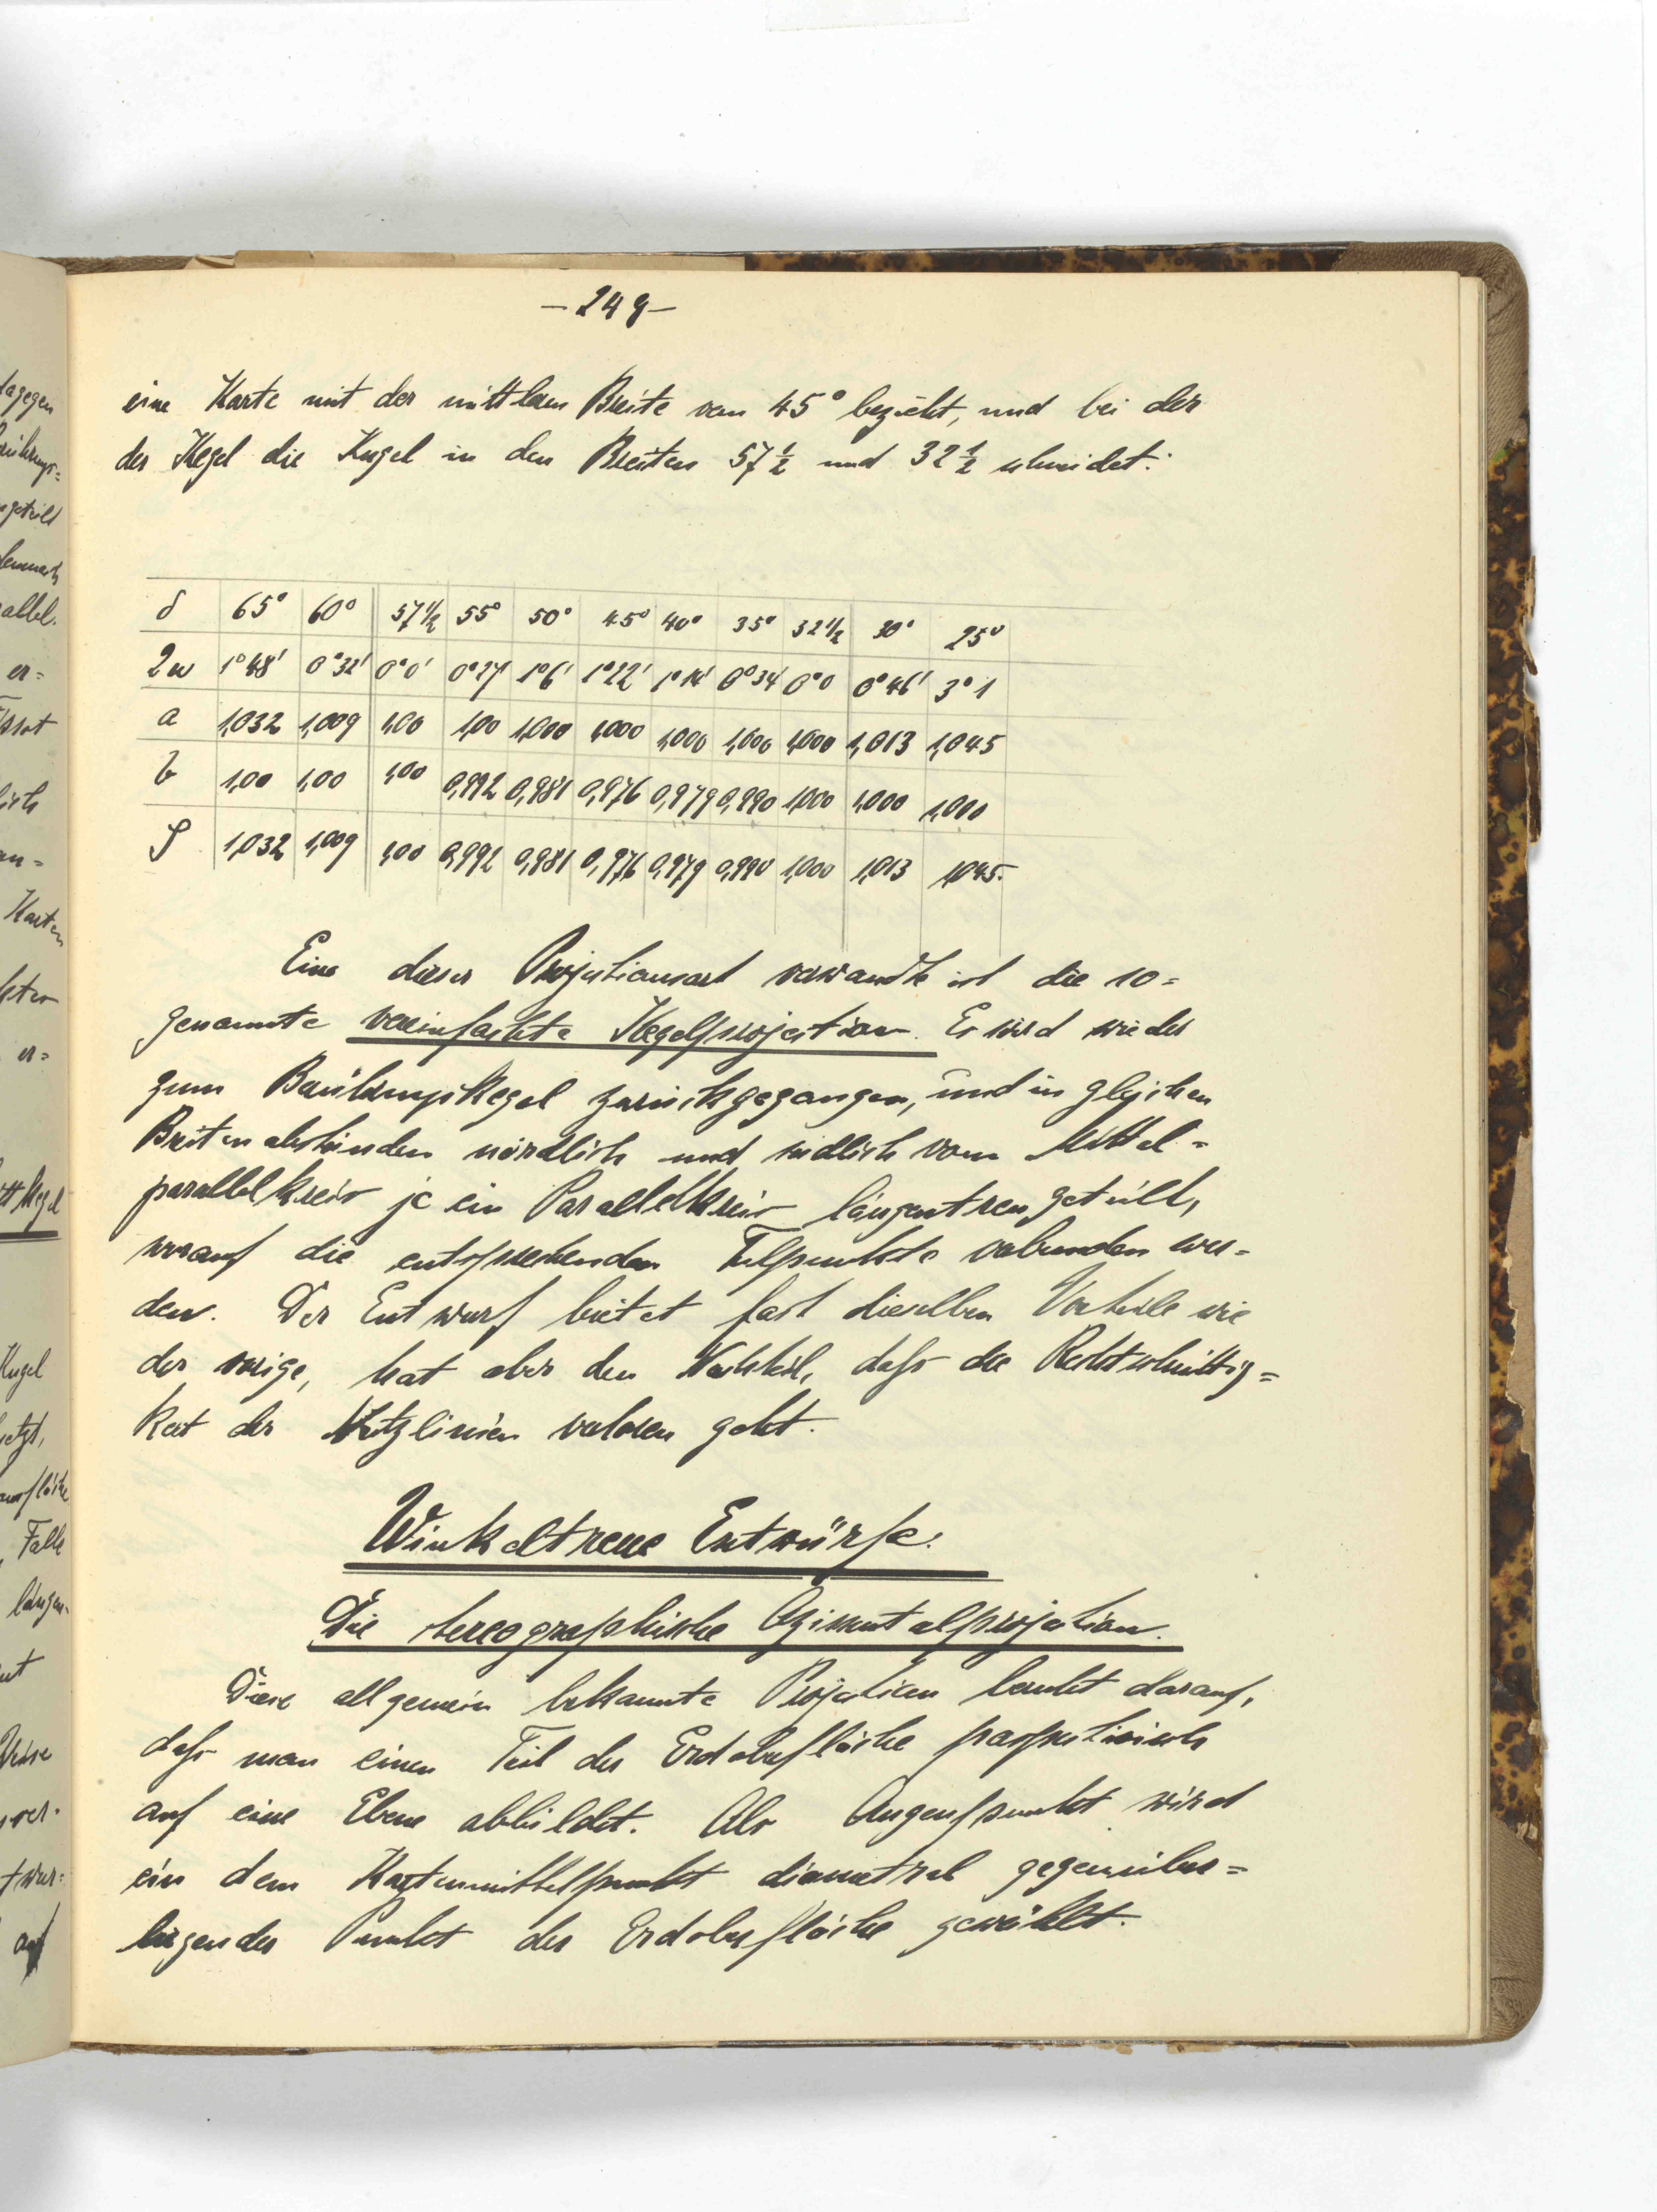 dagegen
geteilt
allel.
er=
Karten
er=
Kugel
Falle
längen-
auf
- 249 -
eine Karte mit der mittleren Breite von 45° bezieht, und bei der
der Kegel die Kugel in den Breiten 57 1/2 und 32 1/2 schneidet:
δ 65° 60° 57 1/2 55° 50° 45° 40° 35° 32 1/2 30° 25°
2w 1°48' 0°32' 0°0' 0°27' 1°6' 1°22' 1°14' 0°34' 0°0 0°46' 3°1
a 1,032 1,009 1,00 1,00 1,000 1,000 1,000 1,000 1,000 1,013 1,045
b 1,00 1,00 1,00 0,992 0,981 0,976 0,979 0,990 1,000 1,000 1,000
S 1,032 1,009 1,00 0,992 0,981 0,976 0,979 0,990 1,000 1,013 1,045.
Eine dieser Projektionsart verwandte ist die so=
genannte vereinfachte Kegelprojection. Es wird wieder
zum Berührungskegel zurückgegangen, und in gleichen
Breitenabständen nördlich und südlich vom Mittel=
parallelkreis je ein Parallelkreis längentreu geteilt,
worauf die entsprechenden Teilpunkte verbunden wer=
den. Der Entwurf bietet fast dieselben Vorteile wie
der vorige, hat aber den Nachteil, daß die Rechtschnittig=
keit der Netzlinien verloren geht.
Winkeltreue Entwürfe.
Die stereographische Azimutalprojektion.
Diese allgemein bekannte Projektion beruht darauf,
daß man einen Teil der Erdoberfläche perspektivisch
auf eine Ebene abbildet. Als Augenpunkt wird
ein dem Kartenmittelpunkt diametral gegenüber=
liegender Punkt der Erdoberfläche gewählt.